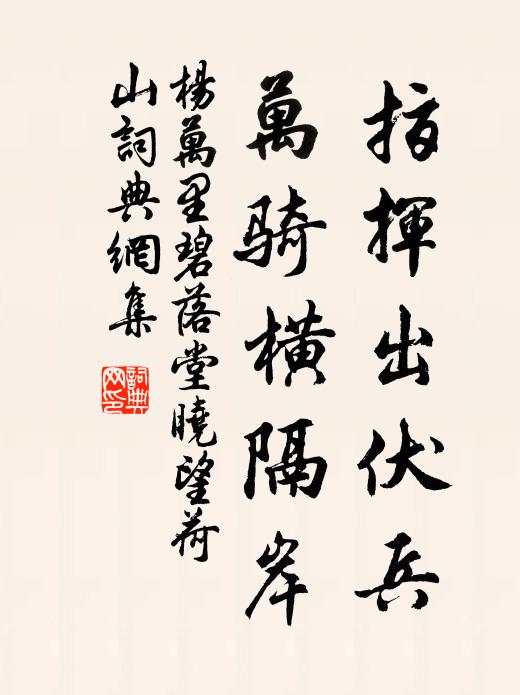 指揮出伏兵
萬騎橫隔岸
楊萬里碧落堂曉望荷
山詞典網集
詞典
网印